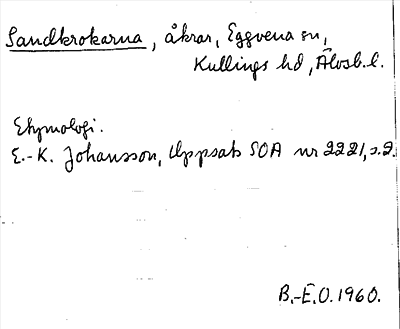 Sandkrokarna, åkrar, Eggvena sn,
Kullings hd, Älvsb. l.
Etymologi.
E.-K. Johansson, Uppsats SOA nr 2221, s. 2.
B.-E.O. 1960.